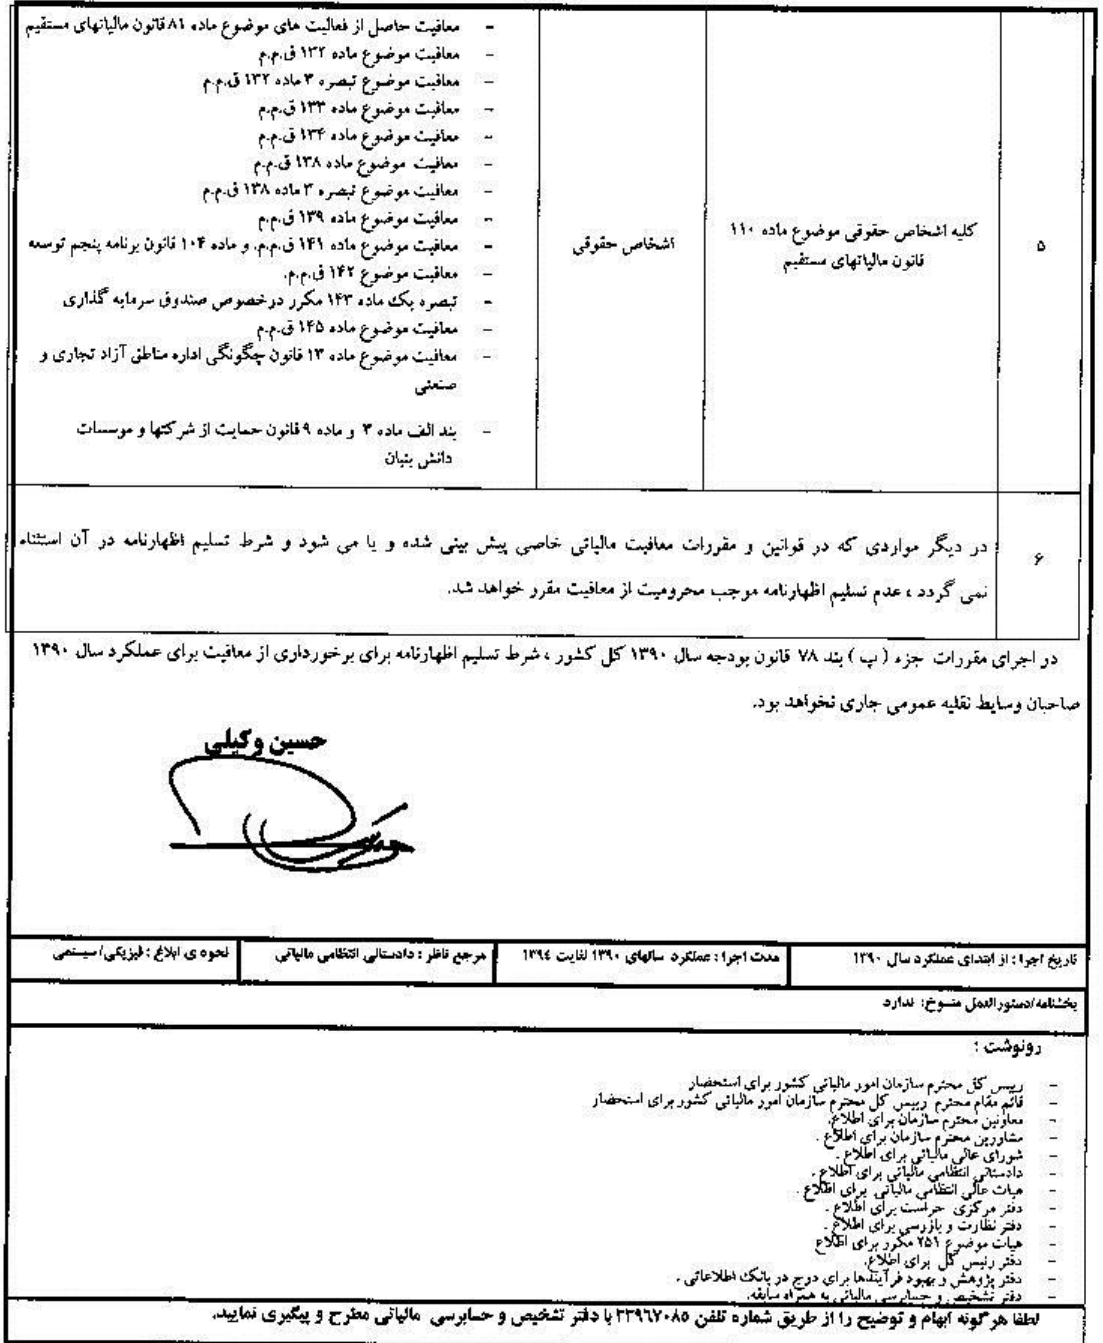 ۵
کلیه اشخاص حقوقی موضوع ماده ۱۱۰
قانون مالیاتهای مستقیم
اشخاص حقوقی
- معافیت حاصل از فعالیت های موضوع ماده ۸۱ قانون مالیاتهای مستقیم
- معافیت موضوع ماده ۱۳۲ ق.م.م
- معافیت موضوع تبصره ۳ ماده ۱۳۲ ق.م.م
- معافیت موضوع ماده ۱۳۳ ق.م.م
- معافیت موضوع ماده ۱۳۴ ق.م.م
- معافیت موضوع ماده ۱۳۸ ق.م.م
- معافیت موضوع تبصره ۳ ماده ۱۳۸ ق.م.م
- معافیت موضوع ماده ۱۳۹ ق.م.م
- معافیت موضوع ماده ۱۴۱ ق.م.م. و ماده ۱۰۴ قانون برنامه پنجم توسعه
- معافیت موضوع ۱۴۲ ق.م.م.
- تبصره یک ماده ۱۴۳ مکرر درخصوص صندوق سرمایه گذاری
- معافیت موضوع ماده ۱۴۵ ق.م.م
- معافیت موضوع ماده ۱۳ قانون چگونگی اداره مناطق آزاد تجاری و
صنعتی
- بند الف ماده ۳ و ماده ۹ قانون حمایت از شرکتها و موسسات
دانش بنیان
۶
در دیگر مواردی که در قوانین و مقررات معافیت مالیاتی خاصی پیش بینی شده و یا می شود و شرط تسلیم اظهارنامه در آن استثناء
نمی گردد ، عدم تسلیم اظهارنامه موجب محرومیت از معافیت مقرر خواهد شد.
در اجرای مقررات جزء ( ب ) بند ۷۸ قانون بودجه سال ۱۳۹۰ کل کشور ، شرط تسلیم اظهارنامه برای برخورداری از معافیت برای عملکرد سال ۱۳۹۰
صاحبان وسایط نقلیه عمومی جاری نخواهد بود.
حسین وکیلی
تاریخ اجرا : از ابتدای عملکرد سال ۱۳۹۰
مدت اجرا : عملکرد سالهای ۱۳۹۰ لغایت ۱۳۹٤
مرجع ناظر : دادستانی انتظامی مالیاتی
نحوه ی ابلاغ : فیزیکی/ سیستمی
بخشنامه/دستورالعمل منسوخ: ندارد
رونوشت :
- رییس کل محترم سازمان امور مالیاتی کشور برای استحضار
- قائم مقام محترم رییس کل محترم سازمان امور مالیاتی کشور برای استحضار
- معاونین محترم سازمان برای اطلاع.
- مشاورین محترم سازمان برای اطلاع .
- شورای عالی مالیاتی برای اطلاع .
- دادستانی انتظامی مالیاتی برای اطلاع .
- هیات عالی انتظامی مالیاتی برای اطلاع .
- دفتر مرکزی حراست برای اطلاع .
- دفتر نظارت و بازرسی برای اطلاع .
- هیات موضوع ۲۵۱ مکرر برای اطلاع
- دفتر رئیس کل برای اطلاع.
- دفتر پژوهش و بهبود فرآیندها برای درج در بانک اطلاعاتی .
- دفتر تشخیص و حسابرسی مالیاتی به همراه سابقه.
لطفا هر گونه ابهام و توضیح را از طریق شماره تلفن ۳۳۹٦۷۰۸۵ با دفتر تشخیص و حسابرسی مالیاتی مطرح و پیگیری نمایید.